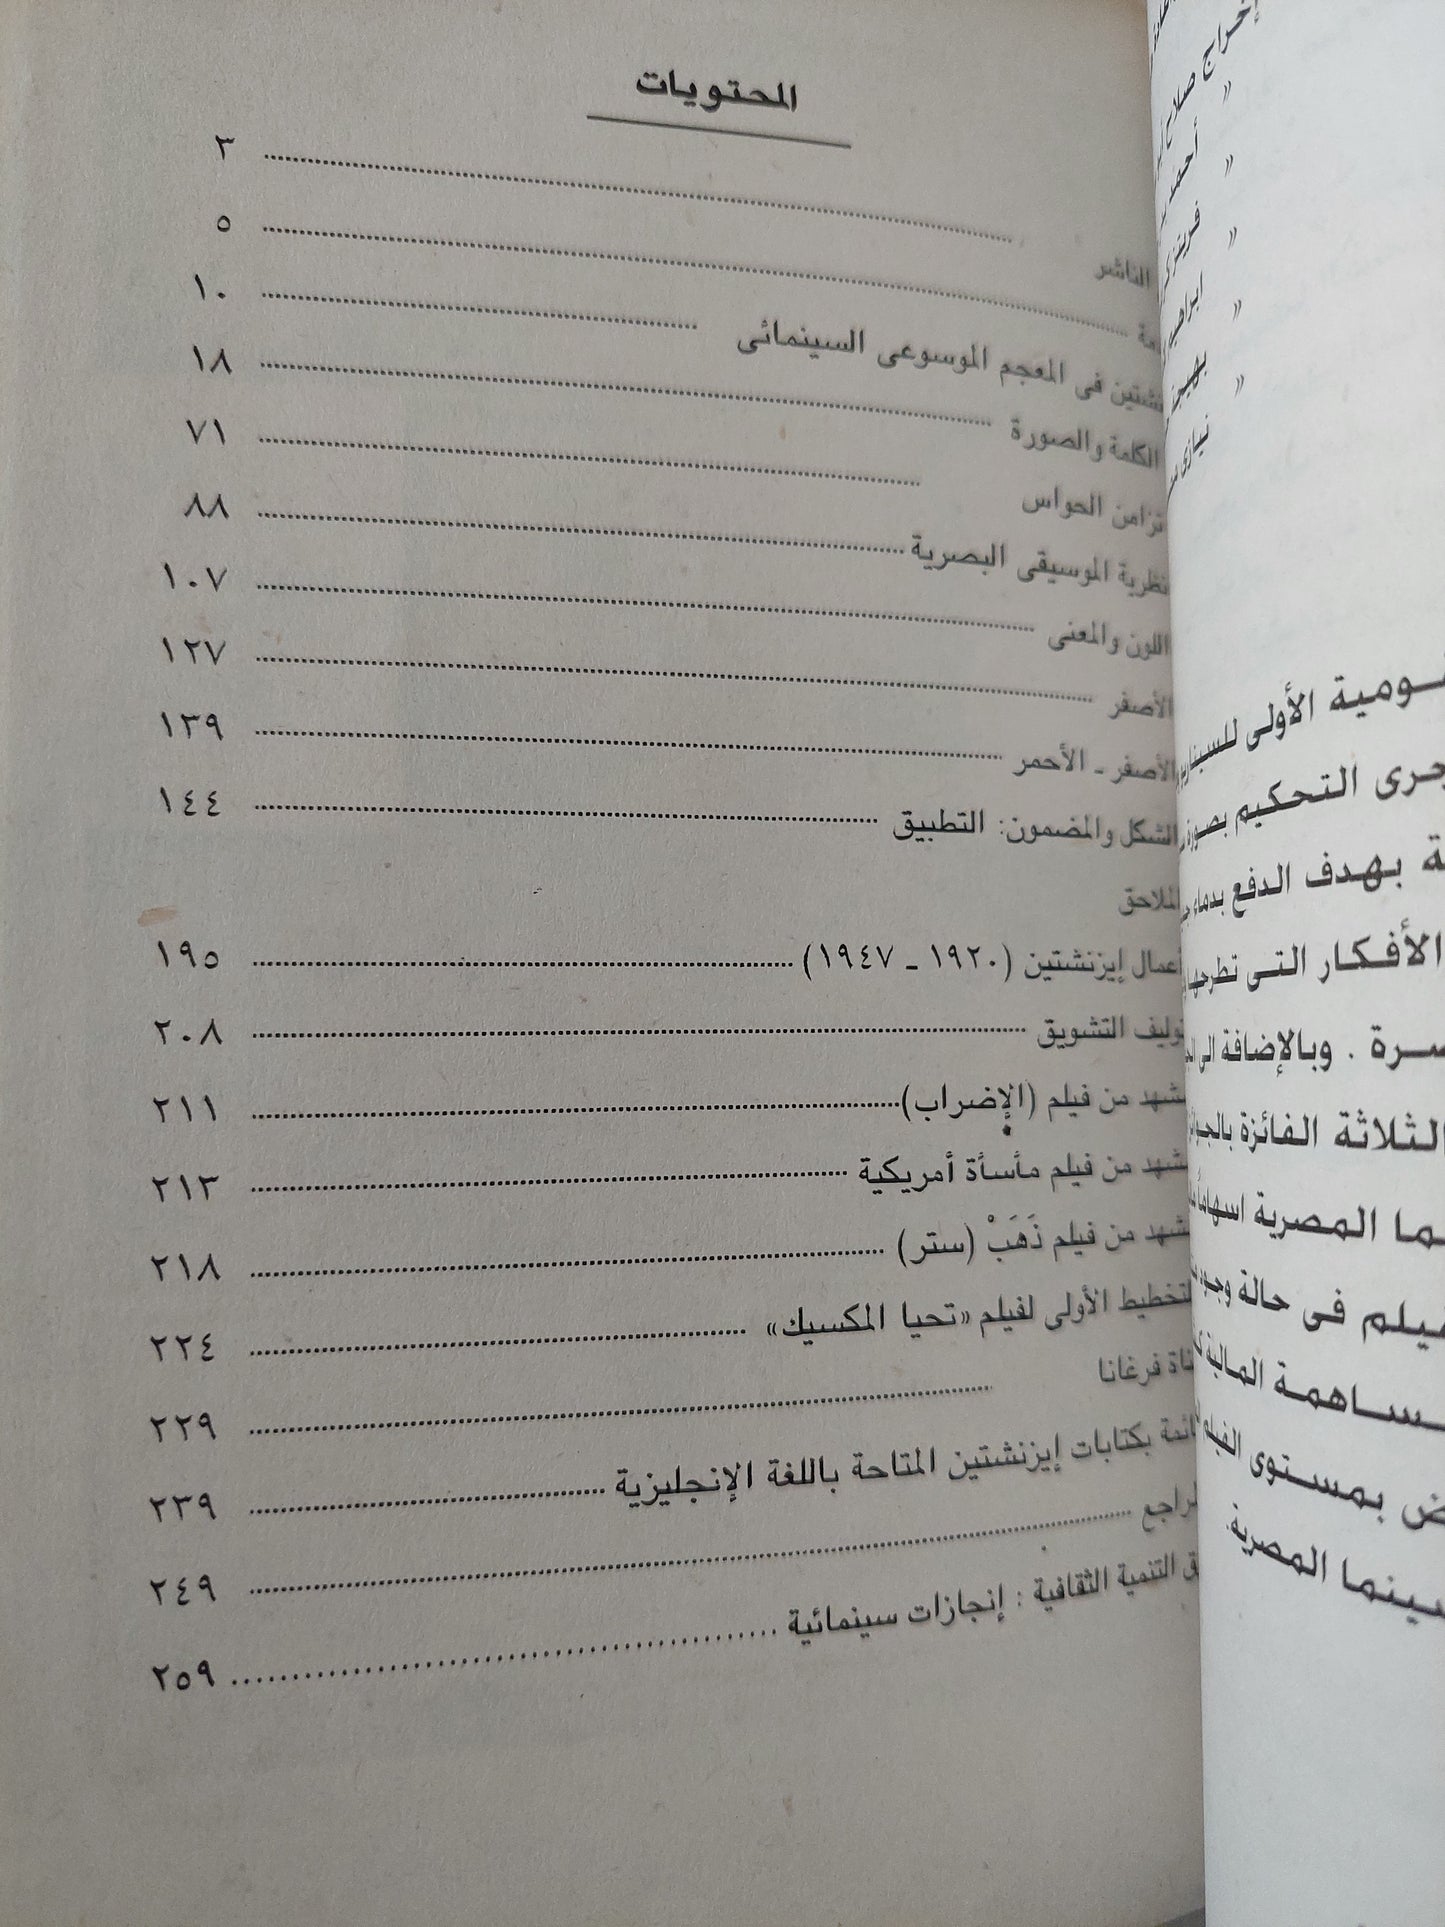 المحتويات
الناشر ........ ٣
........ ٥
فى المعجم الموسوعى السينمائى ........ ١٠
الكلمة والصورة ........ ١٨
تزامن الحواس ........ ٧١
نظرية الموسيقى البصرية ........ ٨٨
اللون والمعنى ........ ١٠٧
الأصفر ........ ١٢٧
الأصفر - الأحمر ........ ١٣٩
الشكل والمضمون: التطبيق ........ ١٤٤
الملاحق
أعمال إيزنشتين (١٩٢٠ - ١٩٤٧) ........ ١٩٥
التشويق ........ ٢٠٨
من فيلم (الإضراب) ........ ٢١١
من فيلم مأسأة أمريكية ........ ٢١٣
من فيلم ذَهَبْ (ستر) ........ ٢١٨
الأولى لفيلم «تحيا المكسيك» ........ ٢٢٤
فرغانا ........ ٢٢٩
بكتابات إيزنشتين المتاحة باللغة الإنجليزية ........ ٢٣٩
........ ٢٤٩
التنمية الثقافية : إنجازات سينمائية ........ ٢٥٩
إخراج صلاح
" أحمد
"
" ابراهيم
"
" نيازى
الأولى
التحكيم بصورة
بهدف الدفع بدماء
الأفكار التى تطرحها
. وبالإضافة الى
الثلاثة الفائزة
المصرية اسهاماً
فى حالة وجود
المالية
بمستوى الفيلم
المصرية.